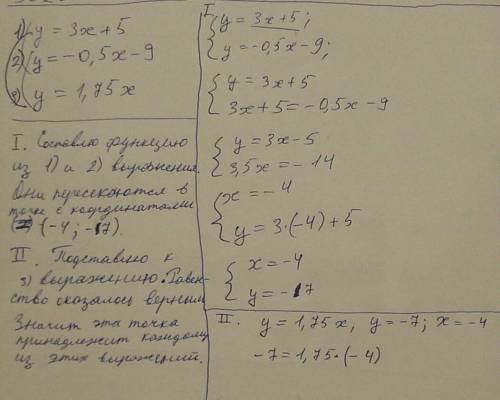 1) y = 3x + 5
2) y = -0,5x - 9
3) y = 1,75x
I. Составлю функцию
из 1) и 2) выражения.
Они пересекаются в
точке с координатами
(-4; -7).
II. Подставлю к
3) выражению. Равен-
ство оказалось верным
Значит эта точка
принадлежит каждому
из этих выражений.
I.
y = 3x + 5;
y = -0,5x - 9;
y = 3x + 5
3x + 5 = -0,5x - 9
y = 3x - 5
3,5x = -14
x = -4
y = 3·(-4) + 5
x = -4
y = -7
II. y = 1,75x, y = -7; x = -4
-7 = 1,75·(-4)